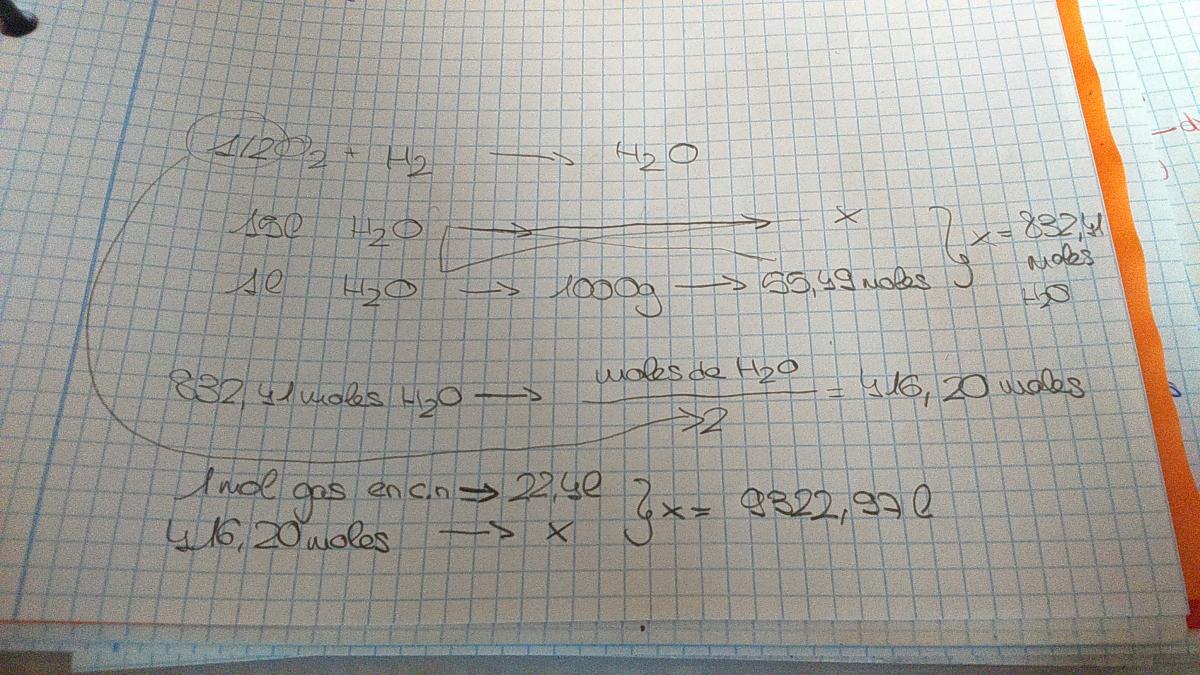 1/2O2 + H2 → H2O
15l H2O → x
1l H2O → 1000g → 55,49 moles } x = 832,41 moles H2O
832,41 moles H2O → moles de H2O / 2 = 416,20 moles
1mol gas en c.n → 22,4l
416,20 moles → x } x = 9322,97 l